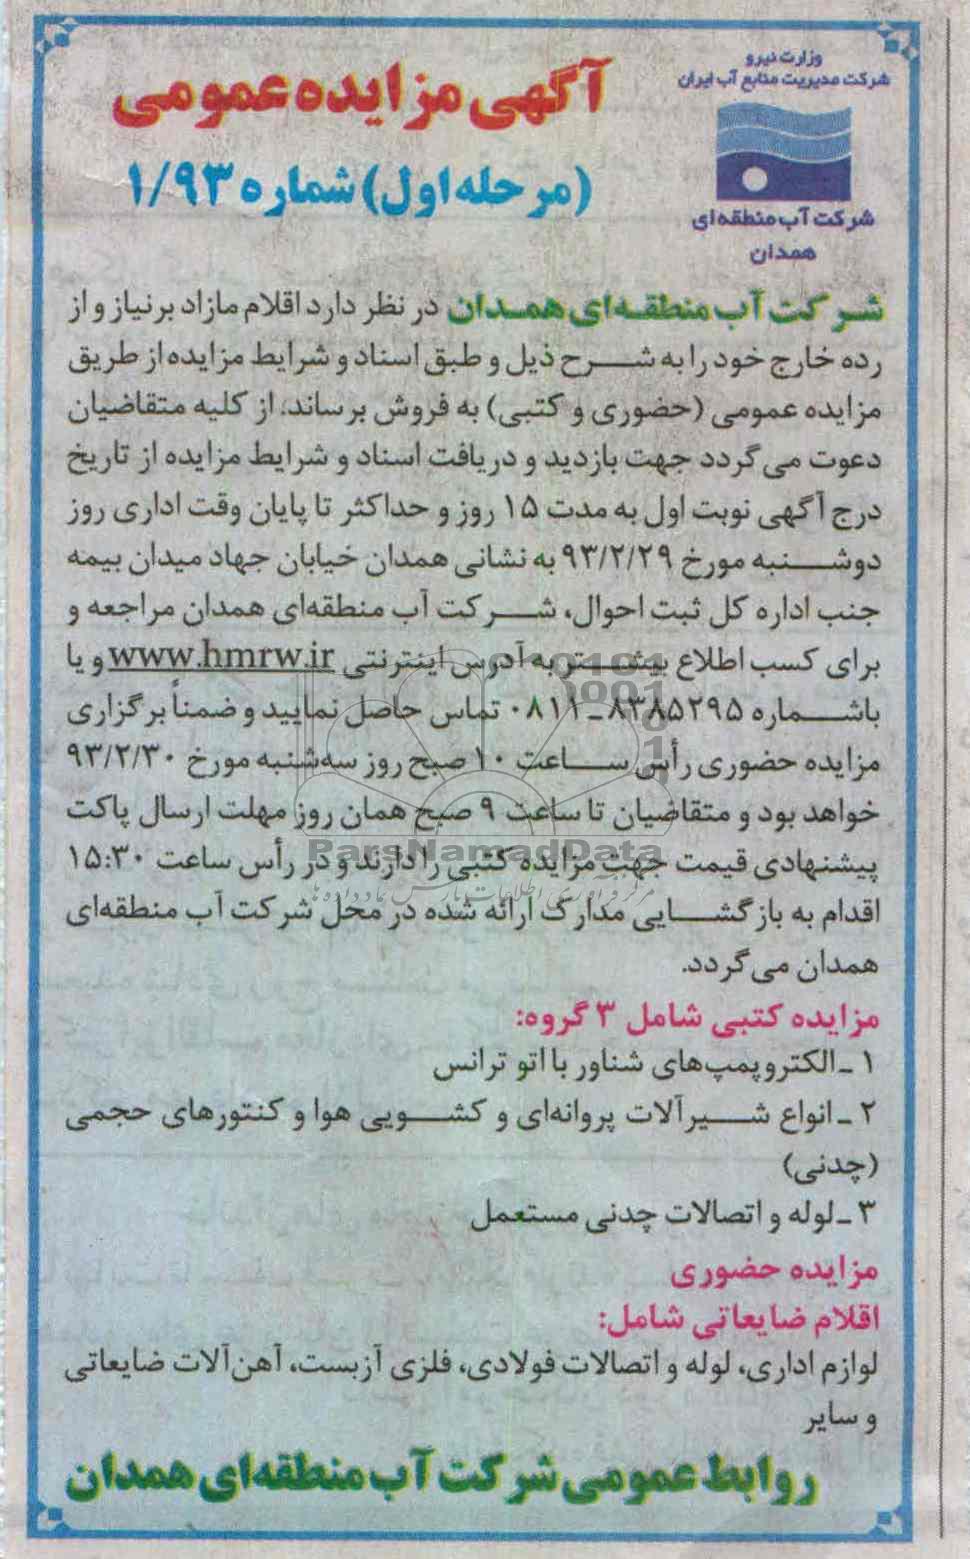 وزارت نیرو
شرکت مدیریت منابع آب ایران
شرکت آب منطقه‌ای
همدان
آگهی مزایده عمومی
(مرحله اول) شماره ۱/۹۳
شرکت آب منطقه‌ای همدان در نظر دارد اقلام مازاد برنیاز و از
رده خارج خود را به شرح ذیل و طبق اسناد و شرایط مزایده از طریق
مزایده عمومی (حضوری و کتبی) به فروش برساند. از کلیه متقاضیان
دعوت می گردد جهت بازدید و دریافت اسناد و شرایط مزایده از تاریخ
درج آگهی نوبت اول به مدت ۱۵ روز و حداکثر تا پایان وقت اداری روز
دوشنبه مورخ ۹۳/۲/۲۹ به نشانی همدان خیابان جهاد میدان بیمه
جنب اداره کل ثبت احوال، شرکت آب منطقه‌ای همدان مراجعه و
برای کسب اطلاع بیشتر به آدرس اینترنتی www.hmrw.ir و یا
باشماره ۸۳۸۵۲۹۵ـ۰۸۱۱ تماس حاصل نمایید و ضمناً برگزاری
مزایده حضوری رأس ساعت ۱۰ صبح روز سه‌شنبه مورخ ۹۳/۲/۳۰
خواهد بود و متقاضیان تا ساعت ۹ صبح همان روز مهلت ارسال پاکت
پیشنهادی قیمت جهت مزایده کتبی را دارند و در رأس ساعت ۱۵:۳۰
اقدام به بازگشایی مدارک ارائه شده در محل شرکت آب منطقه‌ای
همدان می گردد.
مزایده کتبی شامل ۳ گروه:
۱ ـ الکتروپمپ‌های شناور با اتو ترانس
۲ ـ انواع شیرآلات پروانه‌ای و کشویی هوا و کنتورهای حجمی
(چدنی)
۳ ـ لوله و اتصالات چدنی مستعمل
مزایده حضوری
اقلام ضایعاتی شامل:
لوازم اداری، لوله و اتصالات فولادی، فلزی آزبست، آهن‌آلات ضایعاتی
و سایر
روابط عمومی شرکت آب منطقه‌ای همدان
ParsNamadData